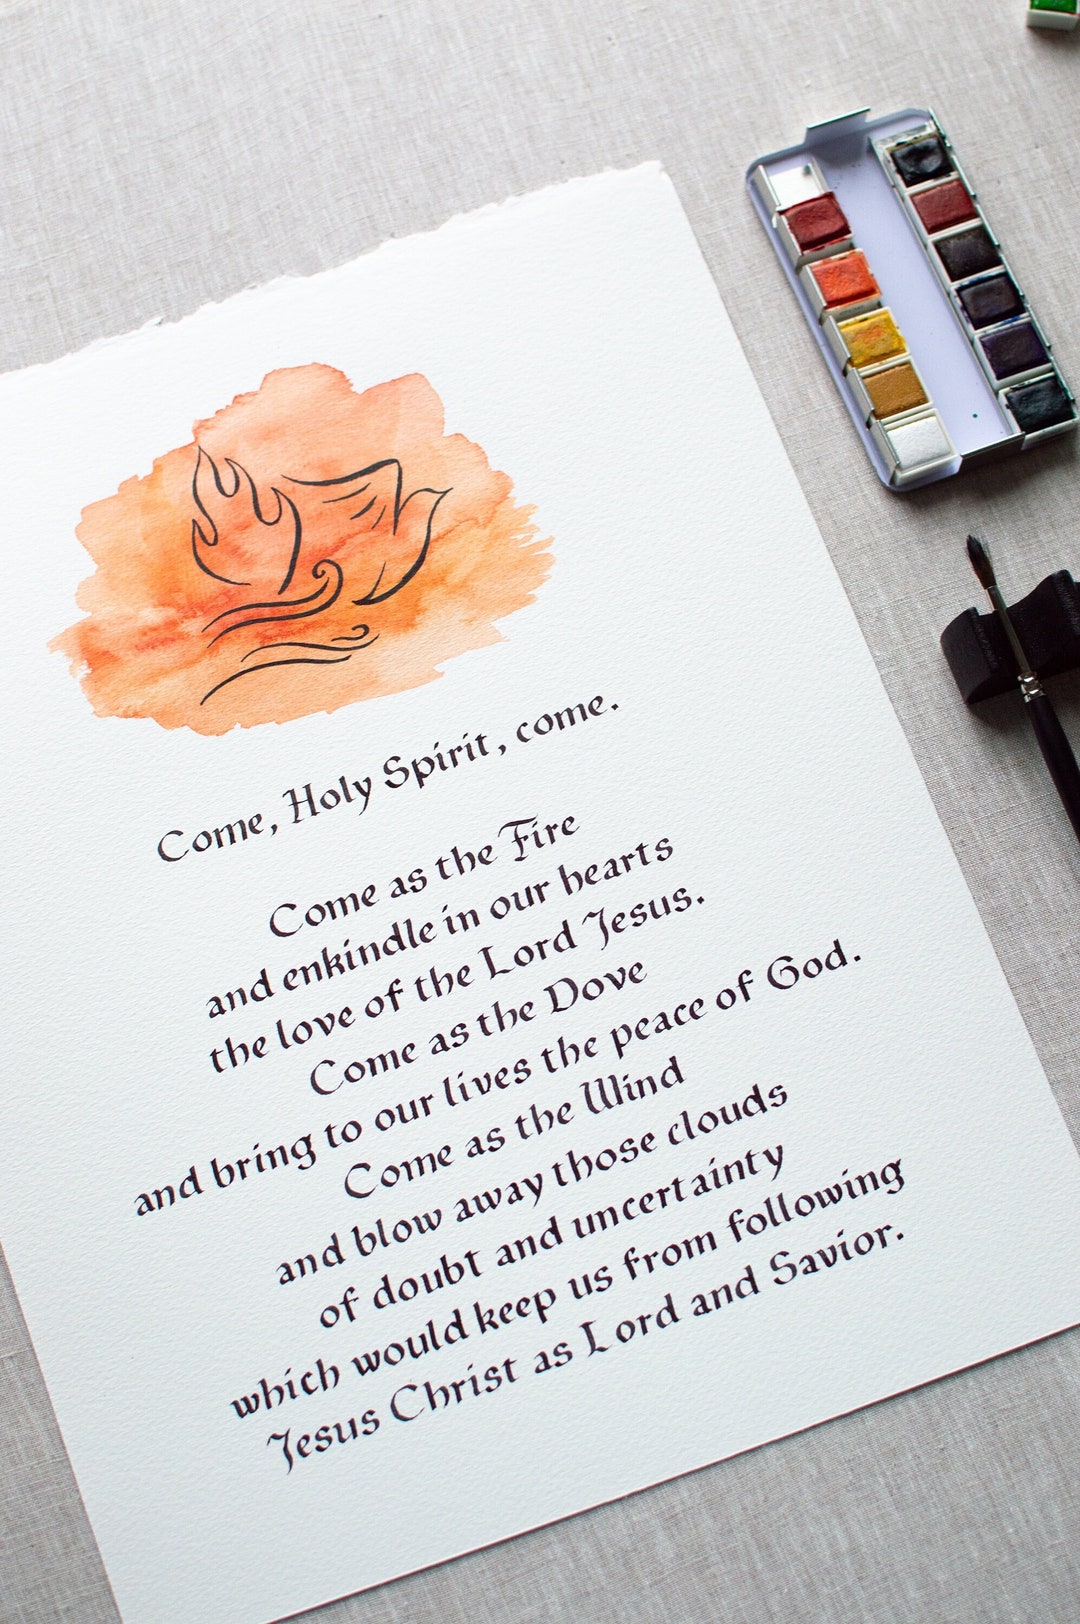 Come, Holy Spirit, come.
Come as the Fire
and enkindle in our hearts
the love of the Lord Jesus.
Come as the Dove
and bring to our lives the peace of God.
Come as the Wind
and blow away those clouds
of doubt and uncertainty
which would keep us from following
Jesus Christ as Lord and Savior.